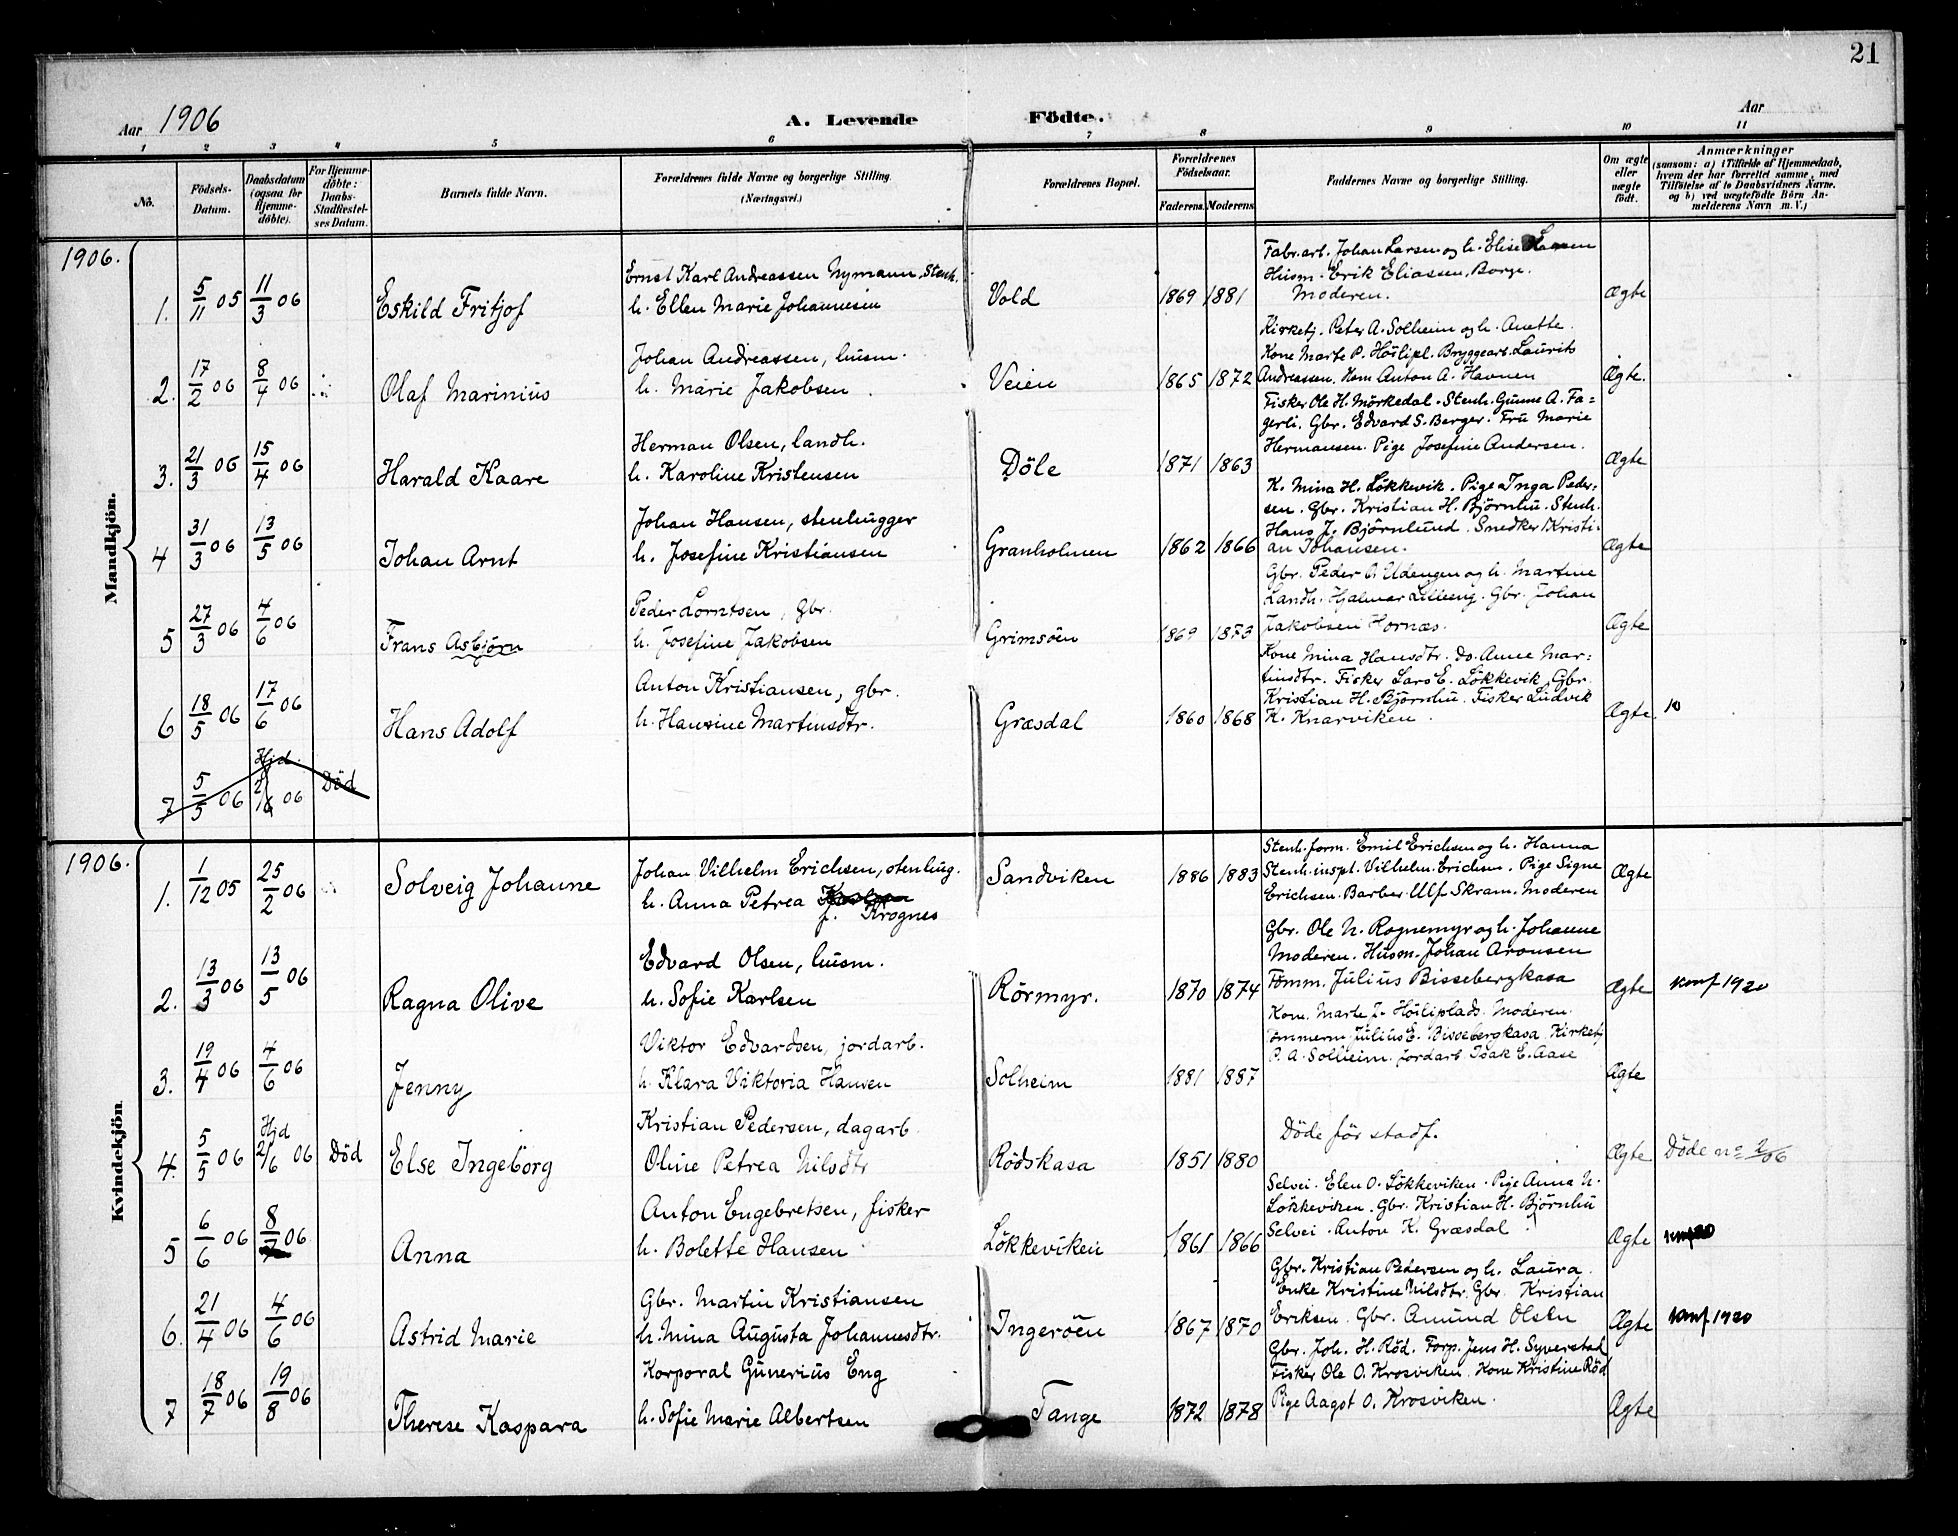 21
Aar 1906
A. Levende Födte.
Aar
1 2 3 4 5 6 7 8 9 10 11
No.
Födsels-Datum.
Daabsdatum (ogsaa for Hjemme-döbte).
For Hjemme-döbte: Daabs-Stadfæstel-ses Datum.
Barnets fulde Navn.
Forældrenes fulde Navne og borgerlige Stilling. (Næringsvei.)
Forældrenes Bopæl.
Forældrenes Födselsaar.
Faderens. Moderens.
Faddernes Navne og borgerlige Stilling.
Om ægte eller uægte födt.
Anmærkninger
(saasom: a) i Tilfælde af Hjemmedaab,
hvem der har forrettet samme, med
Tilföielse af to Daabsvidners Navne,
og b) ved uægtefödte Börn An-
melderens Navn m. V.)
Mandkjön.
1906.
1. 5/11 05 11/3 06 Eskild Fritjof
Ernst Karl Andreassen Nymann, Stenh.
h. Ellen Marie Johannesen
Vold 1869 1881
Fabr.arb. Johan Larsen og h. Elise Larsen
Husm. Erik Eliassen, Borge.
Moderen.
Ægte
2. 17/2 06 8/4 06 Olaf Marinius
Johan Andreassen, husm.
h. Marie Jakobsen
Veien 1865 1872
Kirketj. Peter A. Solheim og h. Anette.
Kone Marte P. Höilipl. Bryggearb. Laurits
Andreassen. Hom Anton A. Havnen
Ægte.
3. 21/3 06 15/4 06 Harald Kaare
Herman Olsen, landh.
h. Karoline Kristensen
Döle 1871 1863
Fisker Ole H. Mörkedal. Stenh. Gunne A. Fa=
gerli. Gbr. Edvard S. Berger. Fru Marie
Hermansen. Pige Josefine Andersen.
Ægte
4 31/3 06 13/5 06 Johan Arnt
Johan Hansen, stenhugger
h. Josefine Kristiansen
Granholmen 1862 1866
K. Mina H. Lökkevik. Pige Inga Peder=
sen. Gbr. Kristian H. Björnhu. Stenh.
Hans J. Björnlund. Snedker Kristi-
an Johansen.
Ægte
5 27/3 06 4/6 06 Frans Asbjörn
Peder Lorntsen, Gbr.
h. Josefine Jakobsen
Grimsöen 1869 1873
Gbr. Peder A. Udengen og h. Martine
Landh. Hjalmar Lilleeng. Gbr. Johan
Jakobsen Hornæs.
Ægte
6 18/5 06 17/6 06 Hans Adolf
Anton Kristiansen, gbr.
h. Hansine Martinsdtr.
Græsdal 1860 1868
Kone Mina Hansdtr. Do. Anne Mar=
tinsdtr. Fisker Lars E. Lökkevik, Gbr.
Kristian H. Björnhu. Fisker Ludvik
K. Knarviken.
Ægte 10
7 5/5 06 Hjd. 2/6 06 Död
Kvindekjön
1906.
1. 1/12 05 25/2 06 Solveig Johanne
Johan Vilhelm Erichsen, stenhug.
h. Anna Petrea
f. Krognes
Sandviken 1886 1883
Stenh.form. Emil Erichsen og h. Hanna
Stenh.inspt. Vilhelm Erichsen. Pige Signe
Erichsen. Barber Ulf Skram. Moderen
Ægte
2. 13/3 06 13/5 06 Ragna Olive
Edvard Olsen, husm.
h. Sofie Karlsen
Rörmyr. 1870 1874
Gbr. Ole N. Rognemyr og h. Johanne
Moderen. Husm. Johan Aronsen
Tömm. Julius Bissebergkasa
Ægte konf 1920
3. 19/4 06 4/6 06 Jenny
Viktor Edvardsen, jordarb.
h. Klara Viktoria Hansen
Solheim 1881 1887
Kone. Marte J. Höiliplads. Moderen.
Tömmerm. Julius E. Bissebergkasa. Kirketj
P. A. Solheim. Jordarb Isak E. Aase
Ægte
4. 5/5 06 Hjd 2/6 06 Död Else Ingeborg
Kristian Pedersen, dagarb.
Oline Petrea Nilsdtr
Rödskasa 1851 1880
Döde för stadf.
Ægte Döde no 2/06
5 6/6 06 8/7 06 Anna
Anton Engebretsen, fisker
h. Bolette Hansen
Lökkeviken 1861 1866
Selvei. Elen O. Lökkeviken. Pige Anna N.
Lökkeviken. Gbr. Kristian H. Björnhu
Selvei. Anton K. Græsdal
Ægte
6. 21/4 06 4/6 06 Astrid Marie
Gbr. Martin Kristiansen
h. Mina Augusta Johannesdtr.
Ingeröen 1867 1870
Gbr. Kristian Pedersen og h. Laura.
Enke Kristine Nilsdtr. Gbr. Kristian
Eriksen. Gbr. Amund Olsen
Ægte konf 1920
7 18/7 06 19/8 06 Therese Kaspara
Korporal Gunerius Eng
h. Sofie Marie Albertsen
Tange 1872 1878
Gbr. Joh. H. Röd. Forp. Jens H. Syverstad
Fisker Ole O. Krosviken. Kone Kristine Röd
Pige Aagot O. Krosviken.
Ægte